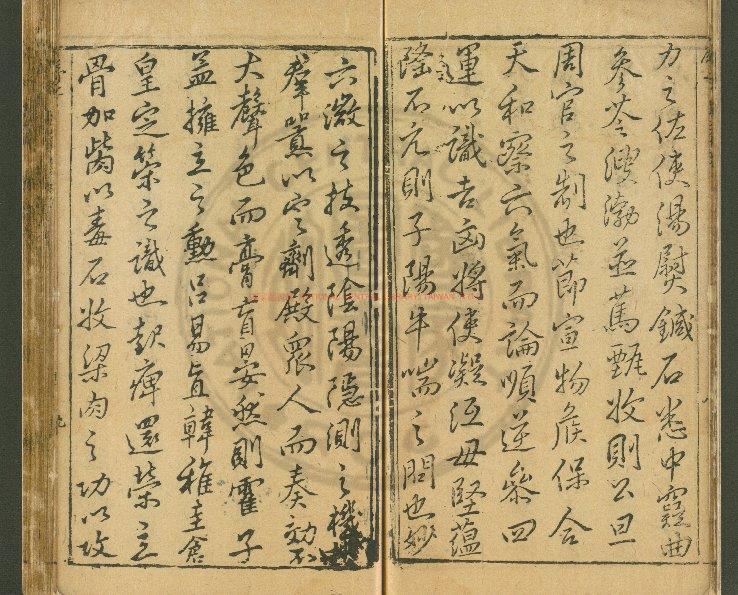 力之佐使湯熨鍼石悉中窾曲
參苓溲渤並蔦甄收則公旦
周官之制也節宣物候保合
天和察六氣而論順逆參四
運以識吉凶將使凝沍毋堅蘊
隆不亢則子陽牛喘之問也妙
六微之技透陰陽隱測之機
羣囂以定劑殿眾人而奏効不
大聲色而膏肓晏然則霍子
孟擁立之勳呂易直韓稚圭倉
皇定策之識也起痺還榮立
骨加齒以毒石收梁肉之功以攻